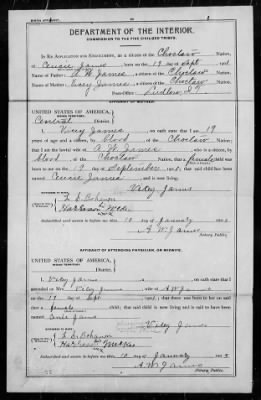 DEPARTMENT OF THE INTERIOR.
COMMISSION TO THE FIVE CIVILIZED TRIBES.
IN RE APPLICATION FOR ENROLLMENT, as a citizen of the Choctaw Nation,
of James, born on the 19 day of Sept
Name of Father: A. W. James, a citizen of the Choctaw Nation.
Name of Mother: Vicey James a citizen of the Choctaw Nation.
Post-Office: Ludlow I.T.
AFFIDAVIT OF MOTHER.
UNITED STATES OF AMERICA,
INDIAN TERRITORY
Central District.
I, Vicey James, on oath state that I am 19
years of age and a citizen, by blood, of the Choctaw Nation;
that I am the lawful wife of A. W. James, who is a citizen, by
blood, of the Choctaw Nation; that a female child was
born to me on 19 day of September, that said child has been named
James, and is now living.
Vicey James
L. E. Bohanon
Harrison McKee
Subscribed and sworn to before me this 10 day of January
A. W. James
Notary Public.
AFFIDAVIT OF ATTENDING PHYSICIAN, OR MIDWIFE.
UNITED STATES OF AMERICA,
INDIAN TERRITORY
District.
I, Vicey James, on oath state that I
attended on Mrs. Vicey James, wife of A W James
on the 19 day of Sept, that there was born to her on said
date a female child; that said child is now living and is said to have been
named James
Vicey James
L. E. Bohanon
Harrison McKee
Subscribed and sworn to before me this 10 day of January
A. W. James
Notary Public.